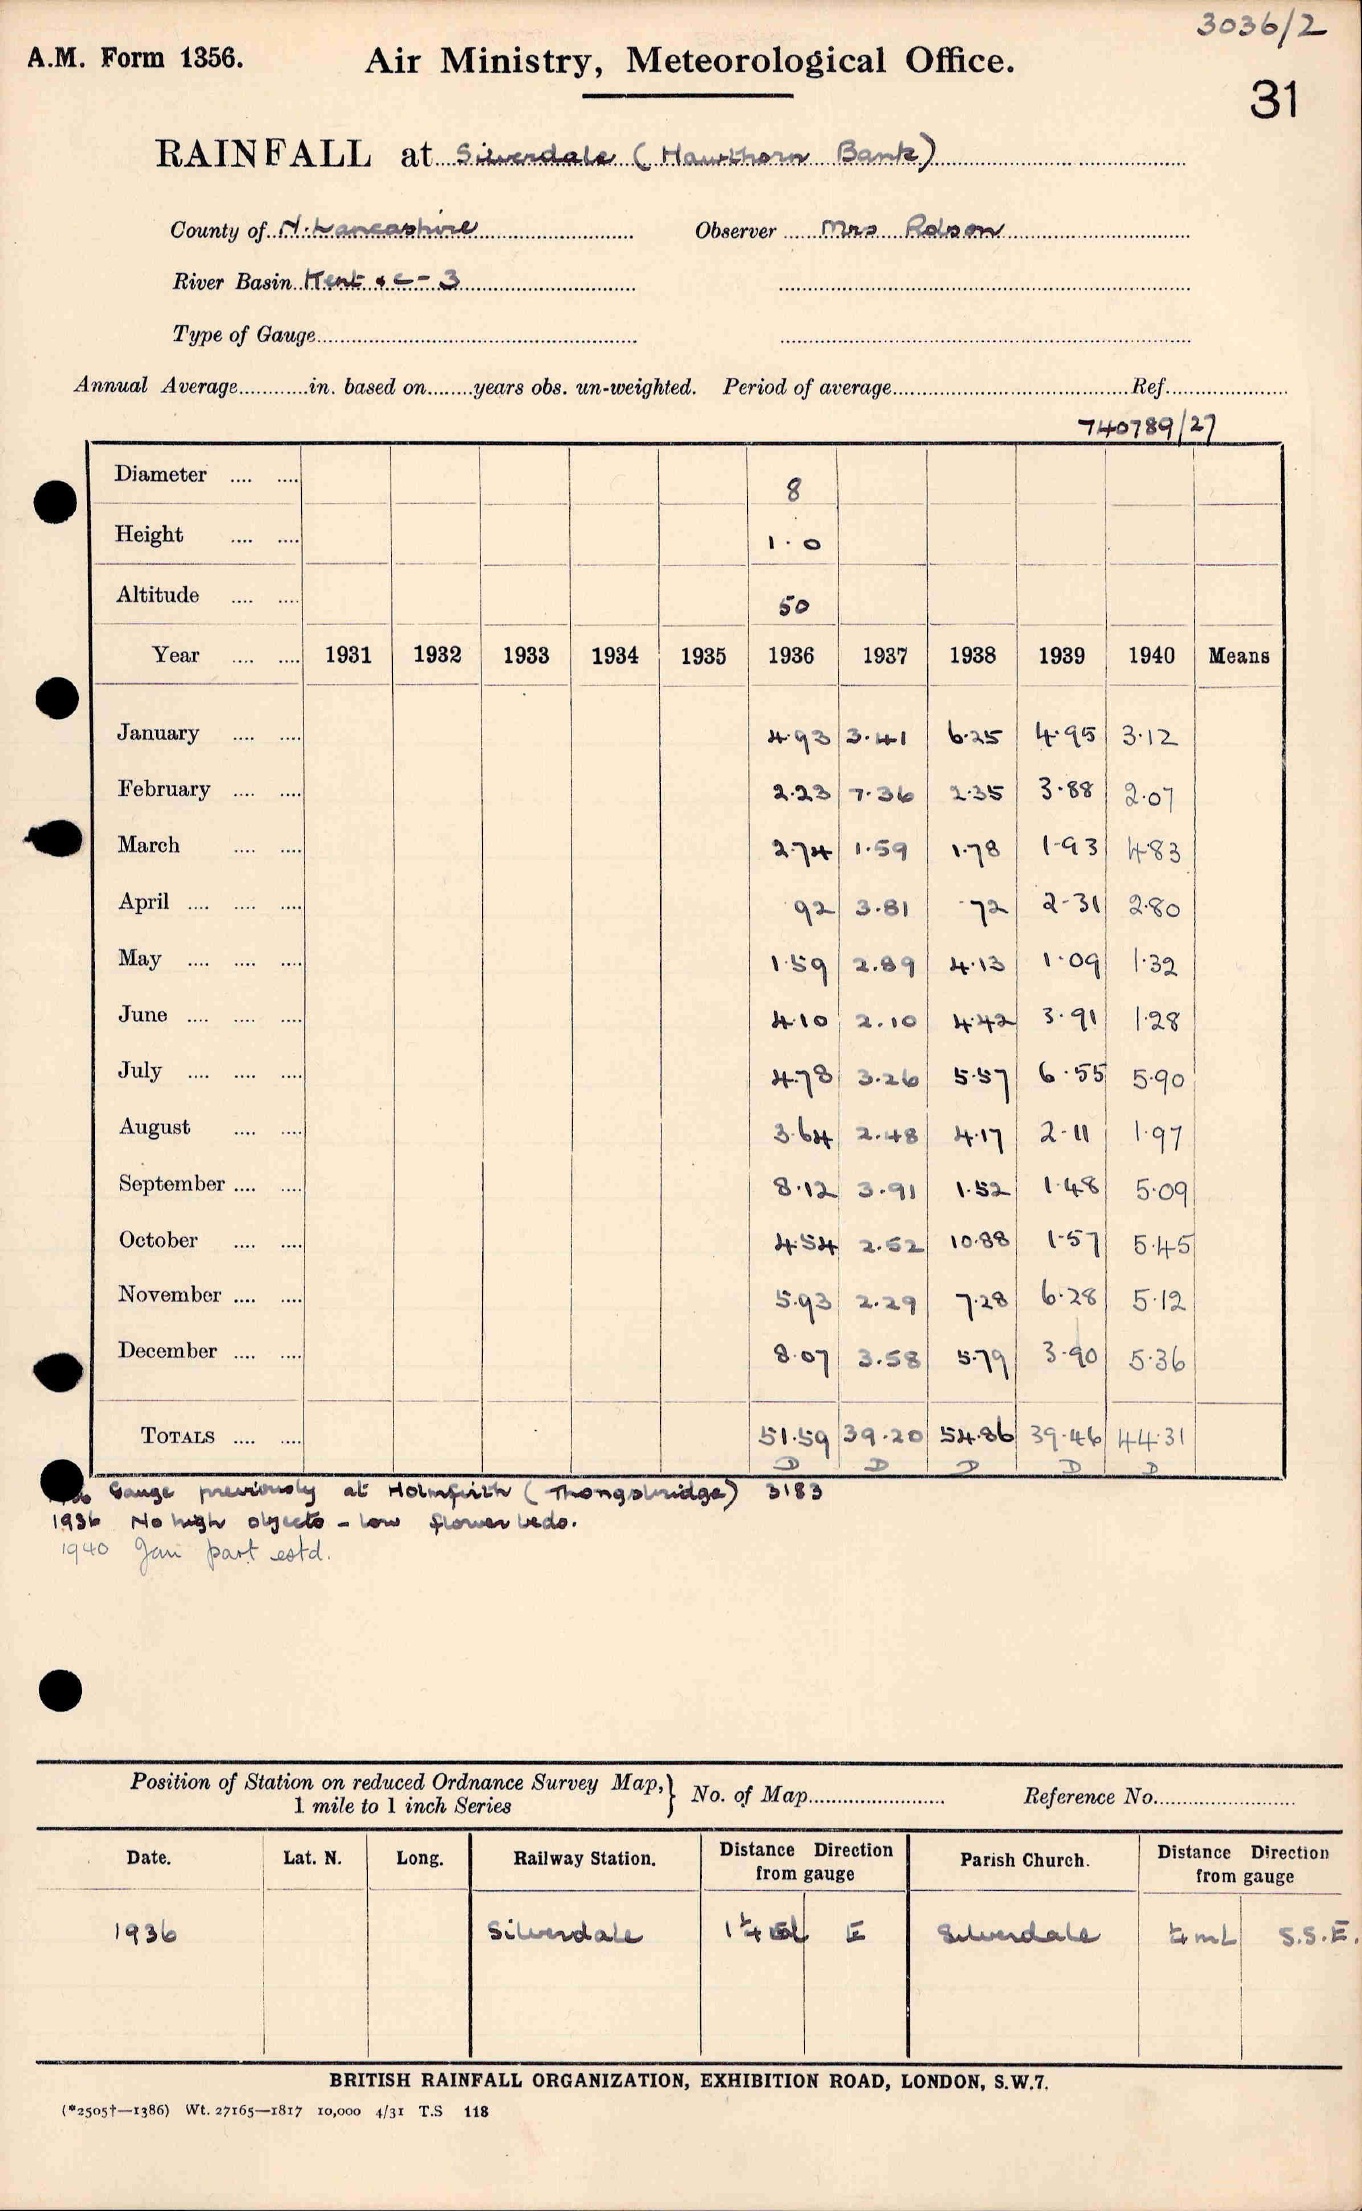 3036/2
A.M. Form 1356. Air Ministry, Meteorological Office.
31
RAINFALL at Silverdale (Hawthorn Bank)
County of N. Lancashire Observer Mrs Robson
River Basin Kent &c - 3
Type of Gauge
Annual Average in. based on years obs. un-weighted. Period of average Ref.
740789/27
Diameter 8
Height 1.0
Altitude 50
Year 1931 1932 1933 1934 1935 1936 1937 1938 1939 1940 Means
January 4.93 3.41 6.25 4.95 3.12
February 2.23 7.36 2.35 3.88 2.07
March 2.74 1.59 1.78 1.93 4.83
April .92 3.81 .72 2.31 2.80
May 1.59 2.89 4.13 1.09 1.32
June 4.10 2.10 4.42 3.91 1.28
July 4.78 3.26 5.57 6.55 5.90
August 3.64 2.48 4.17 2.11 1.97
September 8.12 3.91 1.52 1.48 5.09
October 4.54 2.52 10.88 1.57 5.45
November 5.93 2.29 7.28 6.28 5.12
December 8.07 3.58 5.79 3.90 5.36
TOTALS 51.59 39.20 54.86 39.46 44.31
D D D D D
Gauge previously at Holmfirth (Thongsbridge) 3183
1936 No high objects - low flower beds.
1940 Jan part estd.
Position of Station on reduced Ordnance Survey Map, } No. of Map Reference No.
1 mile to 1 inch Series
Date. Lat. N. Long. Railway Station. Distance Direction from gauge Parish Church. Distance Direction from gauge
1936 Silverdale 1¼ ml E Silverdale ¼ ml S.S.E.
BRITISH RAINFALL ORGANIZATION, EXHIBITION ROAD, LONDON, S.W.7.
(*2505†—1386) Wt. 27165—1817 10,000 4/31 T.S 118